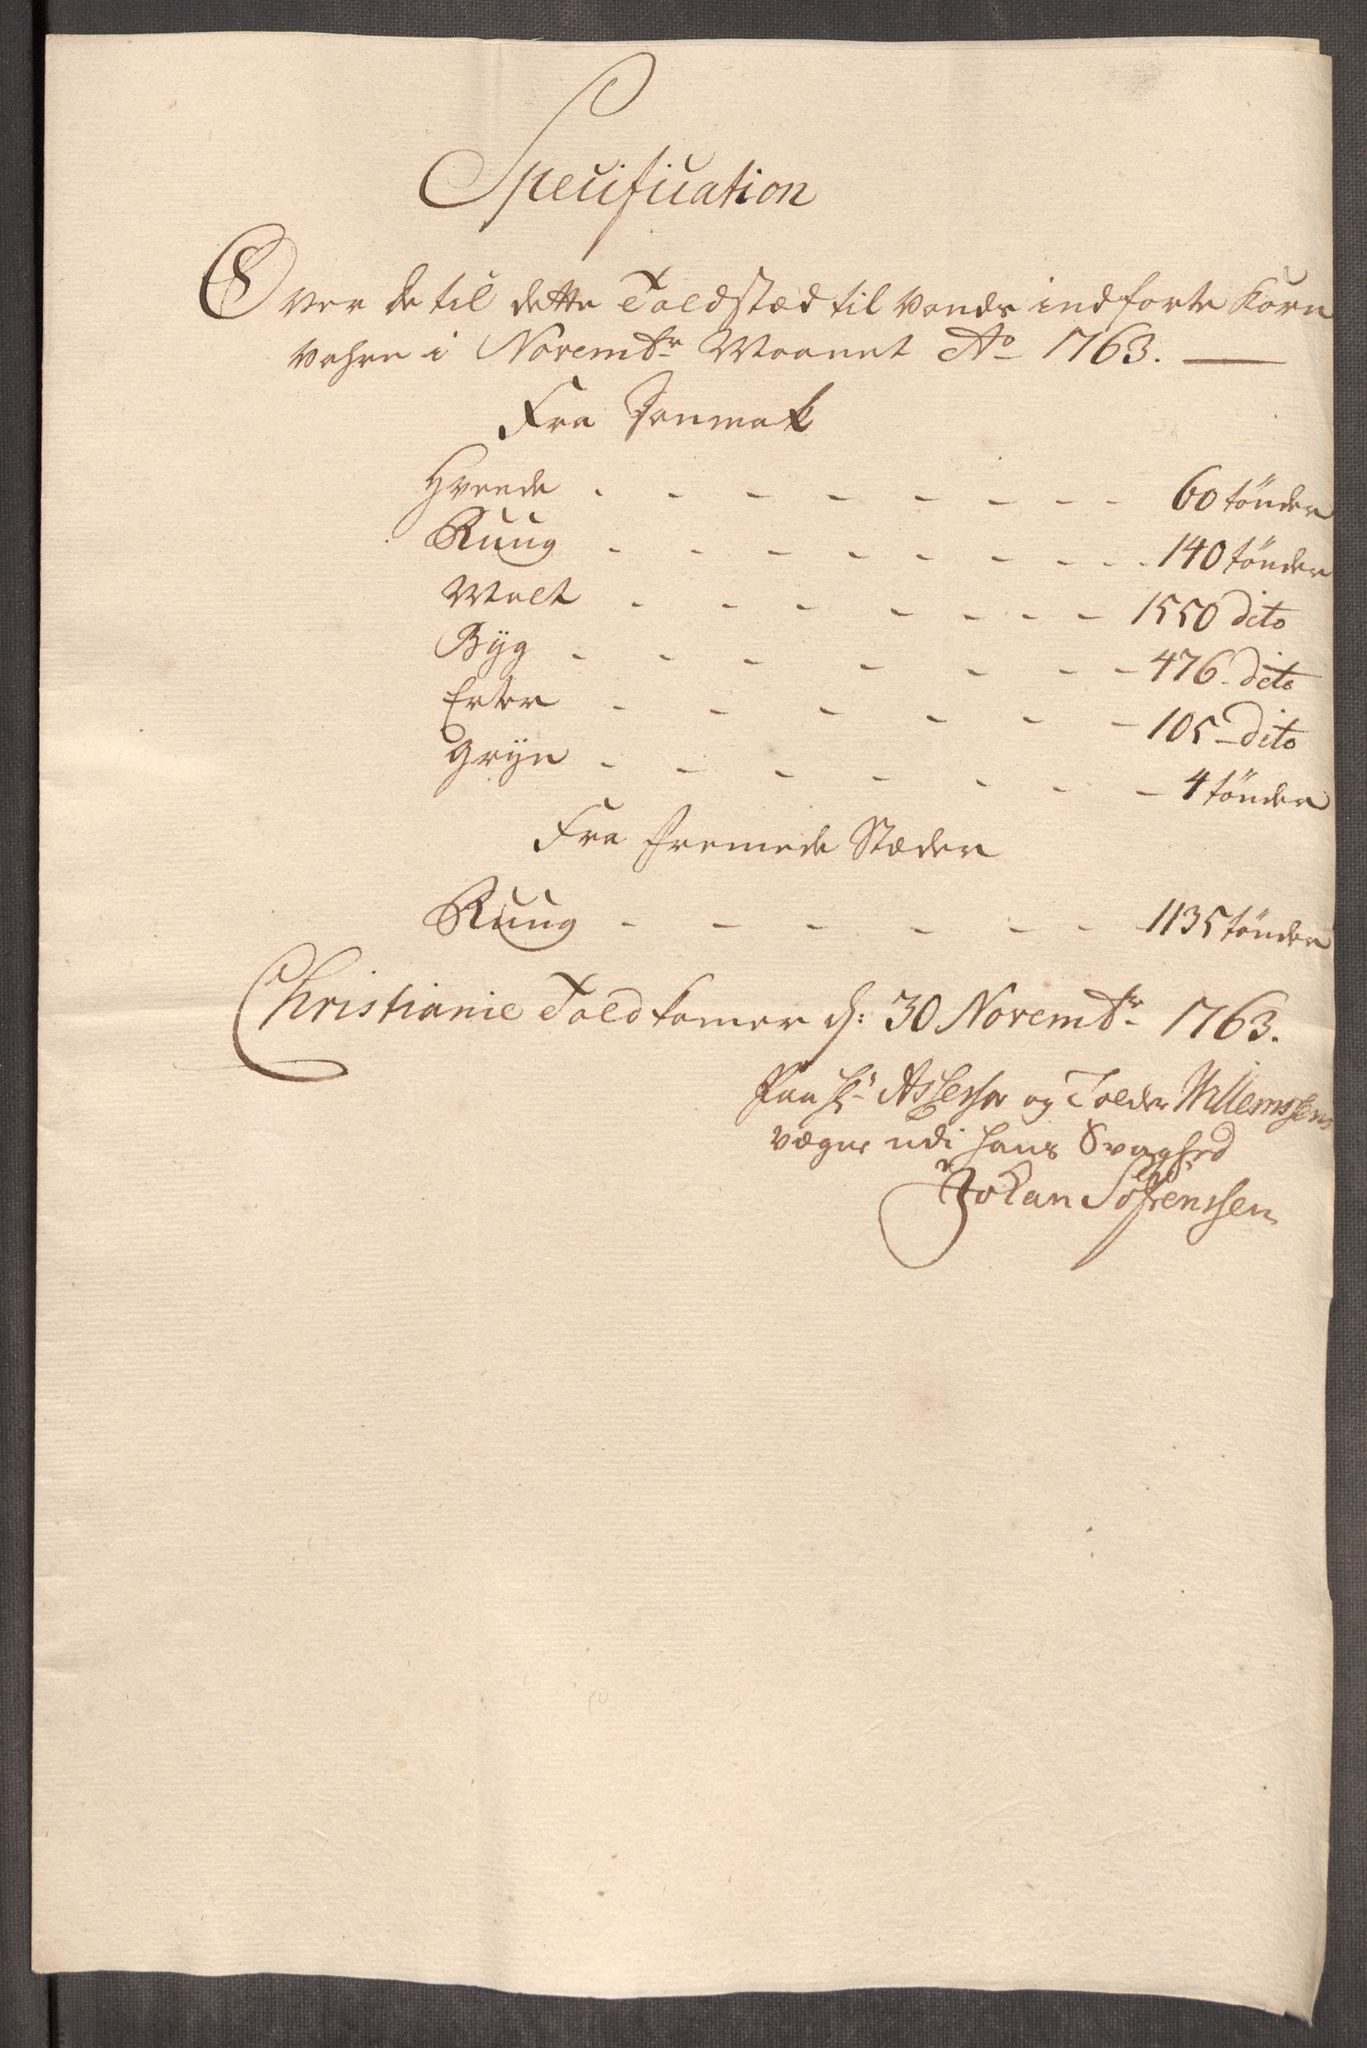 Specification
Over de til dette Toldstæd til Vands indførte Korn
Vahre i Novembr Maanet Ao 1763.
Fra Danmak
Hvede - - - - - - - - 60 tönder
Ruug - - - - - - - - 140 tönder
Malt - - - - - - - 1550 dito
Byg - - - - - - - 476 dito
Erter - - - - - - 105 dito
Gryn - - - - - - - 4 tönder
Fra fremede Stæder
Ruug - - - - - - 1135 tönder
Christianie Toldkamer d: 30 Novembr 1763.
Paa Hr Assessor og Tolder Willemssens
vægne udi hans Svaghed
Johan Sörenssen